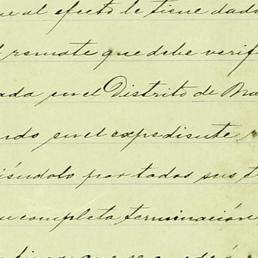 al efecto le tiene dada
remate que debe verif
ada en el Distrito de Ma
ndo en el expediente
iéndolo por todos sus t
su completa terminación